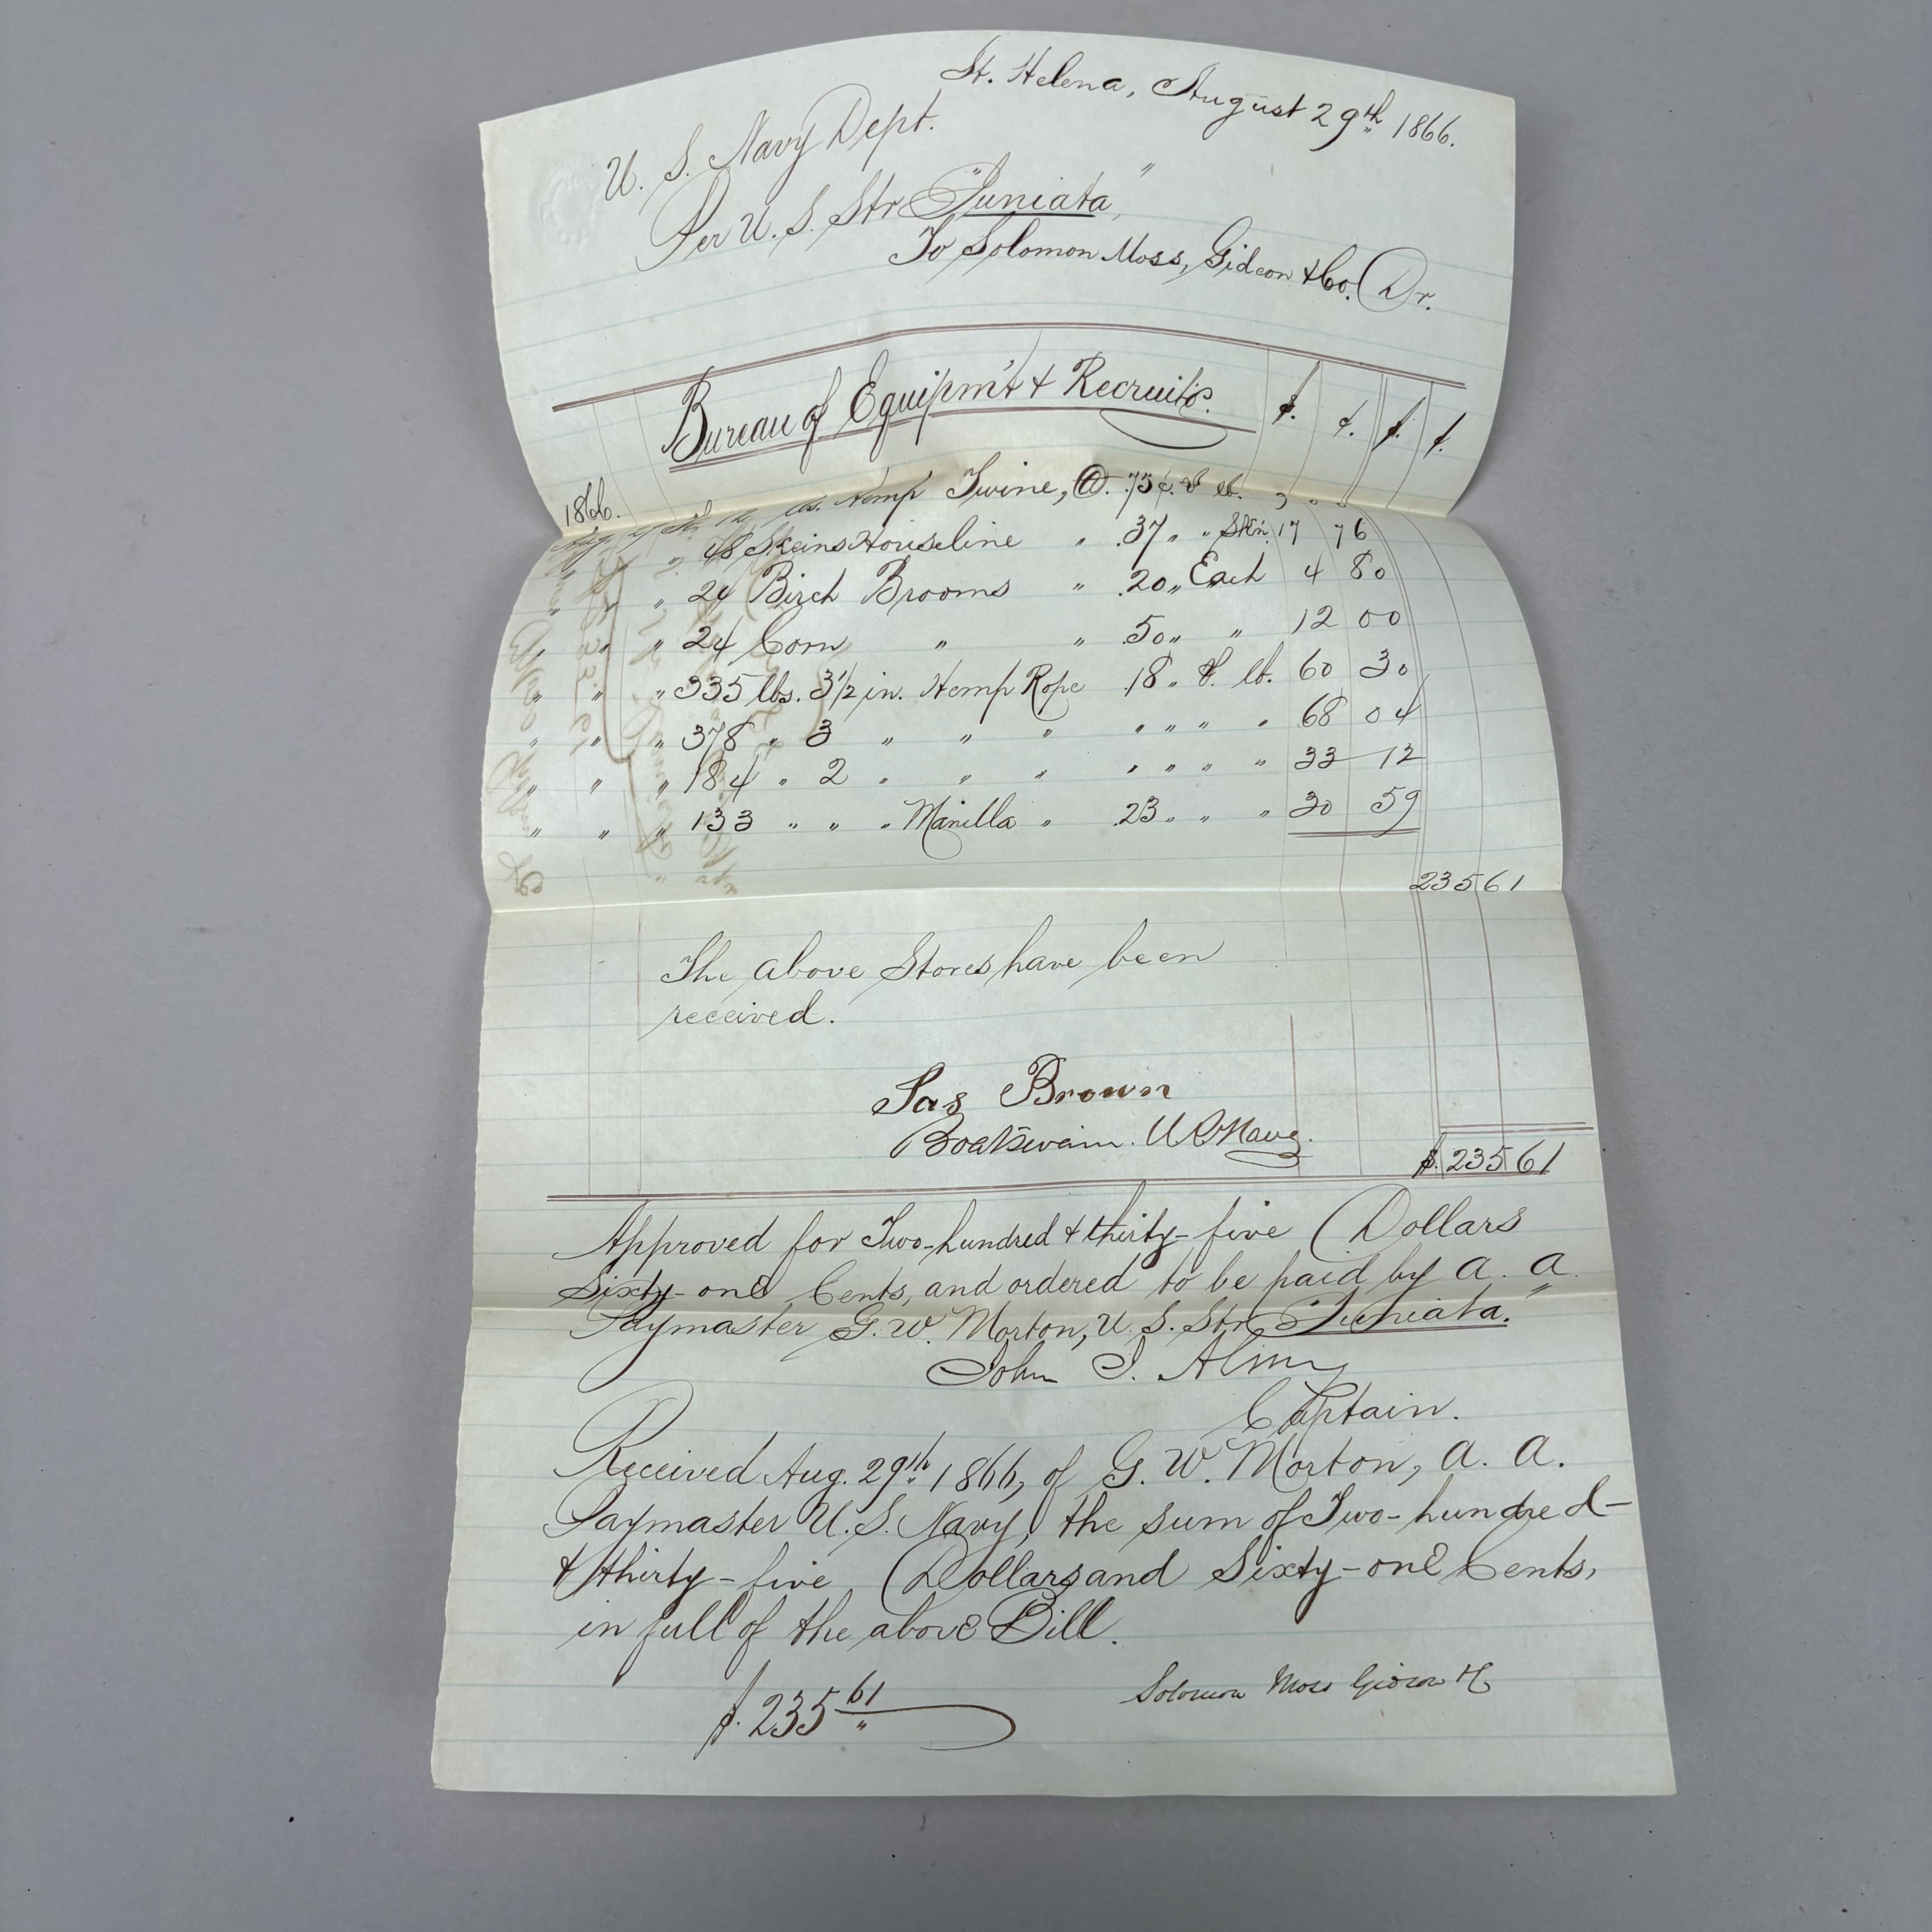 St. Helena, August 29th 1866.
U. S. Navy Dept.
Per U. S. Str "Juniata,"
To Solomon Moss, Gideon & Co. Dr.
Bureau of Equipm't & Recruit'g. $. ¢. $. ¢.
1866.
Aug. lbs. Hemp Twine, @ .75¢. ℔ lb.
" " " 48 Skeins Houseline " .37 " " Skn. 17 76
" " " 24 Birch Brooms " .20 " Each 4 80
" " " 24 Corn " " .50 " " 12 00
" " " 335 lbs. 3½ in. Hemp Rope .18 " ℔. lb. 60 30
" " " 378 " 3 " " " " " " " 68 04
" " " 184 " 2 " " " " " " " 33 12
" " " 133 " " " Manilla " .23 " " " 30 59
235 61
The above Stores have been
received.
Jas Brown
Boatswain. U S Navy.
$. 235 61
Approved for Two-hundred & thirty-five Dollars
Sixty-one Cents, and ordered to be paid by A. A.
Paymaster G. W. Morton, U. S. Str "Juniata."
John J. Almy
Captain.
Received Aug. 29th 1866, of G. W. Morton, A. A.
Paymaster U. S. Navy, the sum of Two-hundred-
& thirty-five Dollars and Sixty-one Cents,
in full of the above Bill.
$. 235 61
Solomon Moss Gideon & Co